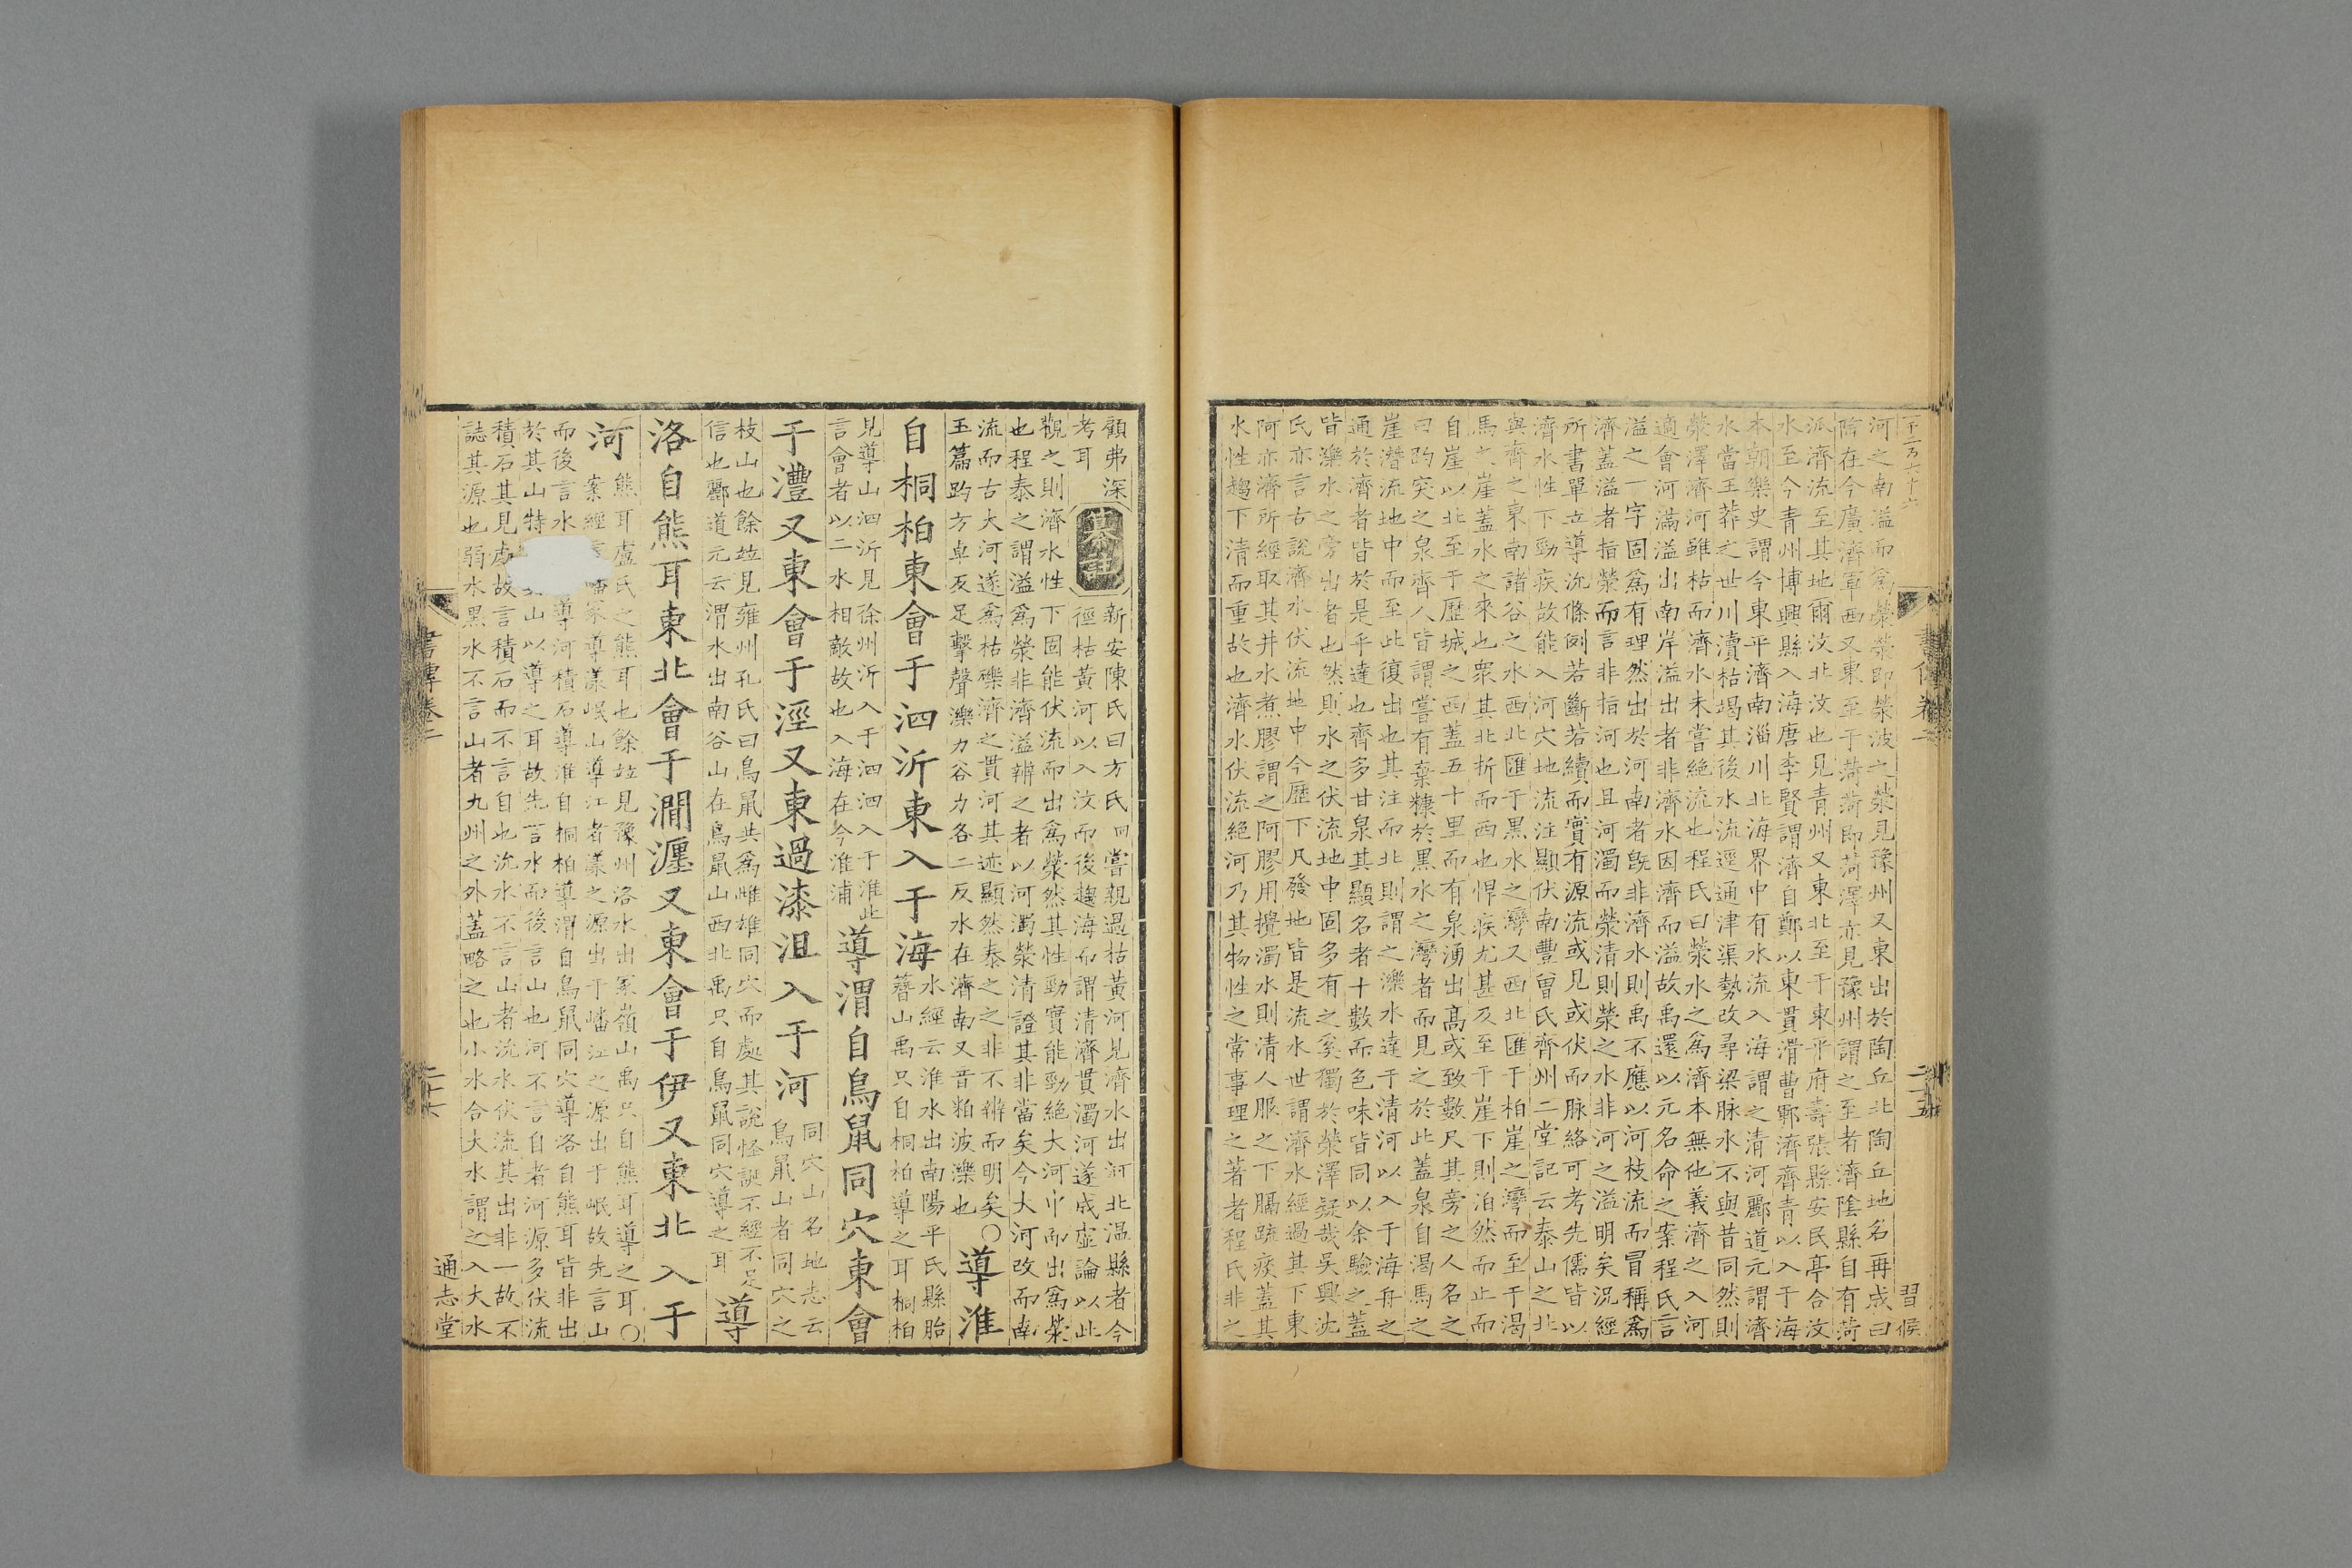 河之南溢而爲滎滎即滎波之滎見豫州又東出於陶丘北陶丘地名再成曰
陶在今廣濟軍西又東至于菏菏即菏澤亦見豫州謂之至者濟陰縣自有菏
派濟流至其地爾汶北汶也見青州又東北至于東平府壽張縣安民亭合汶
水至今青州博興縣入海唐李賢謂濟自鄭以東貫滑曹鄆濟齊青以入于海
本朝樂史謂今東平濟南淄川北海界中有水流入海謂之清河酈道元謂濟
水當王莽之世川瀆枯竭其後水流逕通津渠勢改尋梁脉水不與昔同然則
滎澤濟河雖枯而濟水未嘗絕流也程氏曰滎水之爲濟本無他義濟之入河
適會河滿溢出南岸溢出者非濟水因濟而溢故禹還以元名命之案程氏言
溢之一字固爲有理然出於河南者旣非濟水則禹不應以河枝流而冒稱爲
濟蓋溢者指滎而言非指河也且河濁而滎清則滎之水非河之溢明矣況經
所書單立導沇條例若斷若續而實有源流或見或伏而脉絡可考先儒皆以
濟水性下勁疾故能入河穴地流注顯伏南豐曾氏齊州二堂記云泰山之北
與齊之東南諸谷之水西北匯于黑水之灣又西北匯于柏崖之灣而至于渴
馬之崖蓋水之來也衆其北折而西也悍疾尤甚及至于崖下則泊然而止而
自崖以北至于歷城之西蓋五十里而有泉湧出高或致數尺其旁之人名之
曰趵突之泉齊人皆謂嘗有棄糠於黑水之灣者而見之於此蓋泉自渴馬之
崖潛流地中而至此復出也其注而北則謂之濼水達于清河以入于海舟之
通於濟者皆於是乎達也齊多甘泉其顯名者十數而色味皆同以余驗之蓋
皆濼水之旁出者也然則水之伏流地中固多有之奚獨於滎澤疑哉吳興沈
氏亦言古說濟水伏流地中今歷下凡發地皆是流水世謂濟水經過其下東
阿亦濟所經取其井水煮膠謂之阿膠用攪濁水則清人服之下膈疏痰蓋其
水性趨下清而重故也濟水伏流絕河乃其物性之常事理之著者程氏非之
書傳卷二
二十五
習侯
顧弗深
考耳
纂註
新安陳氏曰方氏回嘗親過枯黃河見濟水出河北溫縣者今
徑枯黃河以入汶而後趨海而謂清濟貫濁河遂成虛論以此
觀之則濟水性下固能伏流而出爲滎然其性勁實能勁絕大河中而出爲滎
也程泰之謂溢爲滎非濟溢辨之者以河濁滎清證其非當矣今大河改而南
流而古大河遂爲枯礫濟之貫河其迹顯然泰之之非不辨而明矣〇導淮
玉篇趵方卓反足擊聲濼力谷力各二反水在濟南又音粕波濼也
自桐柏東會于泗沂東入于海
水經云淮水出南陽平氏縣胎
簪山禹只自桐柏導之耳桐柏
見導山泗沂見徐州沂入于泗泗入于淮此
言會者以二水相敵故也入海在今淮浦
導渭自鳥鼠同穴東會
于灃又東會于涇又東過漆沮入于河
同穴山名地志云
鳥鼠山者同穴之
枝山也餘竝見雍州孔氏曰鳥鼠共爲雌雄同穴而處其說怪誕不經不足
信也酈道元云渭水出南谷山在鳥鼠山西北禹只自鳥鼠同穴導之耳
導
洛自熊耳東北會于澗瀍又東會于伊又東北入于
河
熊耳盧氏之熊耳也餘竝見豫州洛水出冢嶺山禹只自熊耳導之耳〇
案經言嶓冢導漾岷山導江者漾之源出于嶓江之源出于岷故先言山
而後言水 導河積石導淮自桐柏導渭自鳥鼠同穴導洛自熊耳皆非出
於其山特 山以導之耳故先言水而後言山也河不言自者河源多伏流
積石其見處故言積石而不言自也沇水不言山者沇水伏流其出非一故不
誌其源也弱水黑水不言山者九州之外蓋略之也小水合大水謂之入大水
書傳卷二
二十六
通志堂